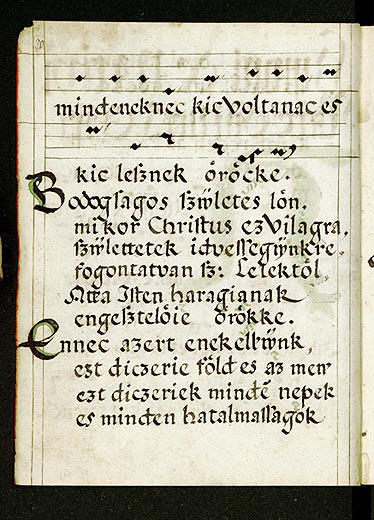 mindeneknec kic voltanac es
kic lesznek öröcke.
Bodogsagos szẅletes lön,
mikor Christus ez vilagra,
szẅlettetek idvessegẅnkre,
fogontatvan sz: Lelektöl,
Atta Isten haragianak
engesztelöie örökke.
Ennec azert enekellẅnk,
ezt diczerie föld es az meny
ezt diczeriek mindē nepek
es minden hatalmassagok